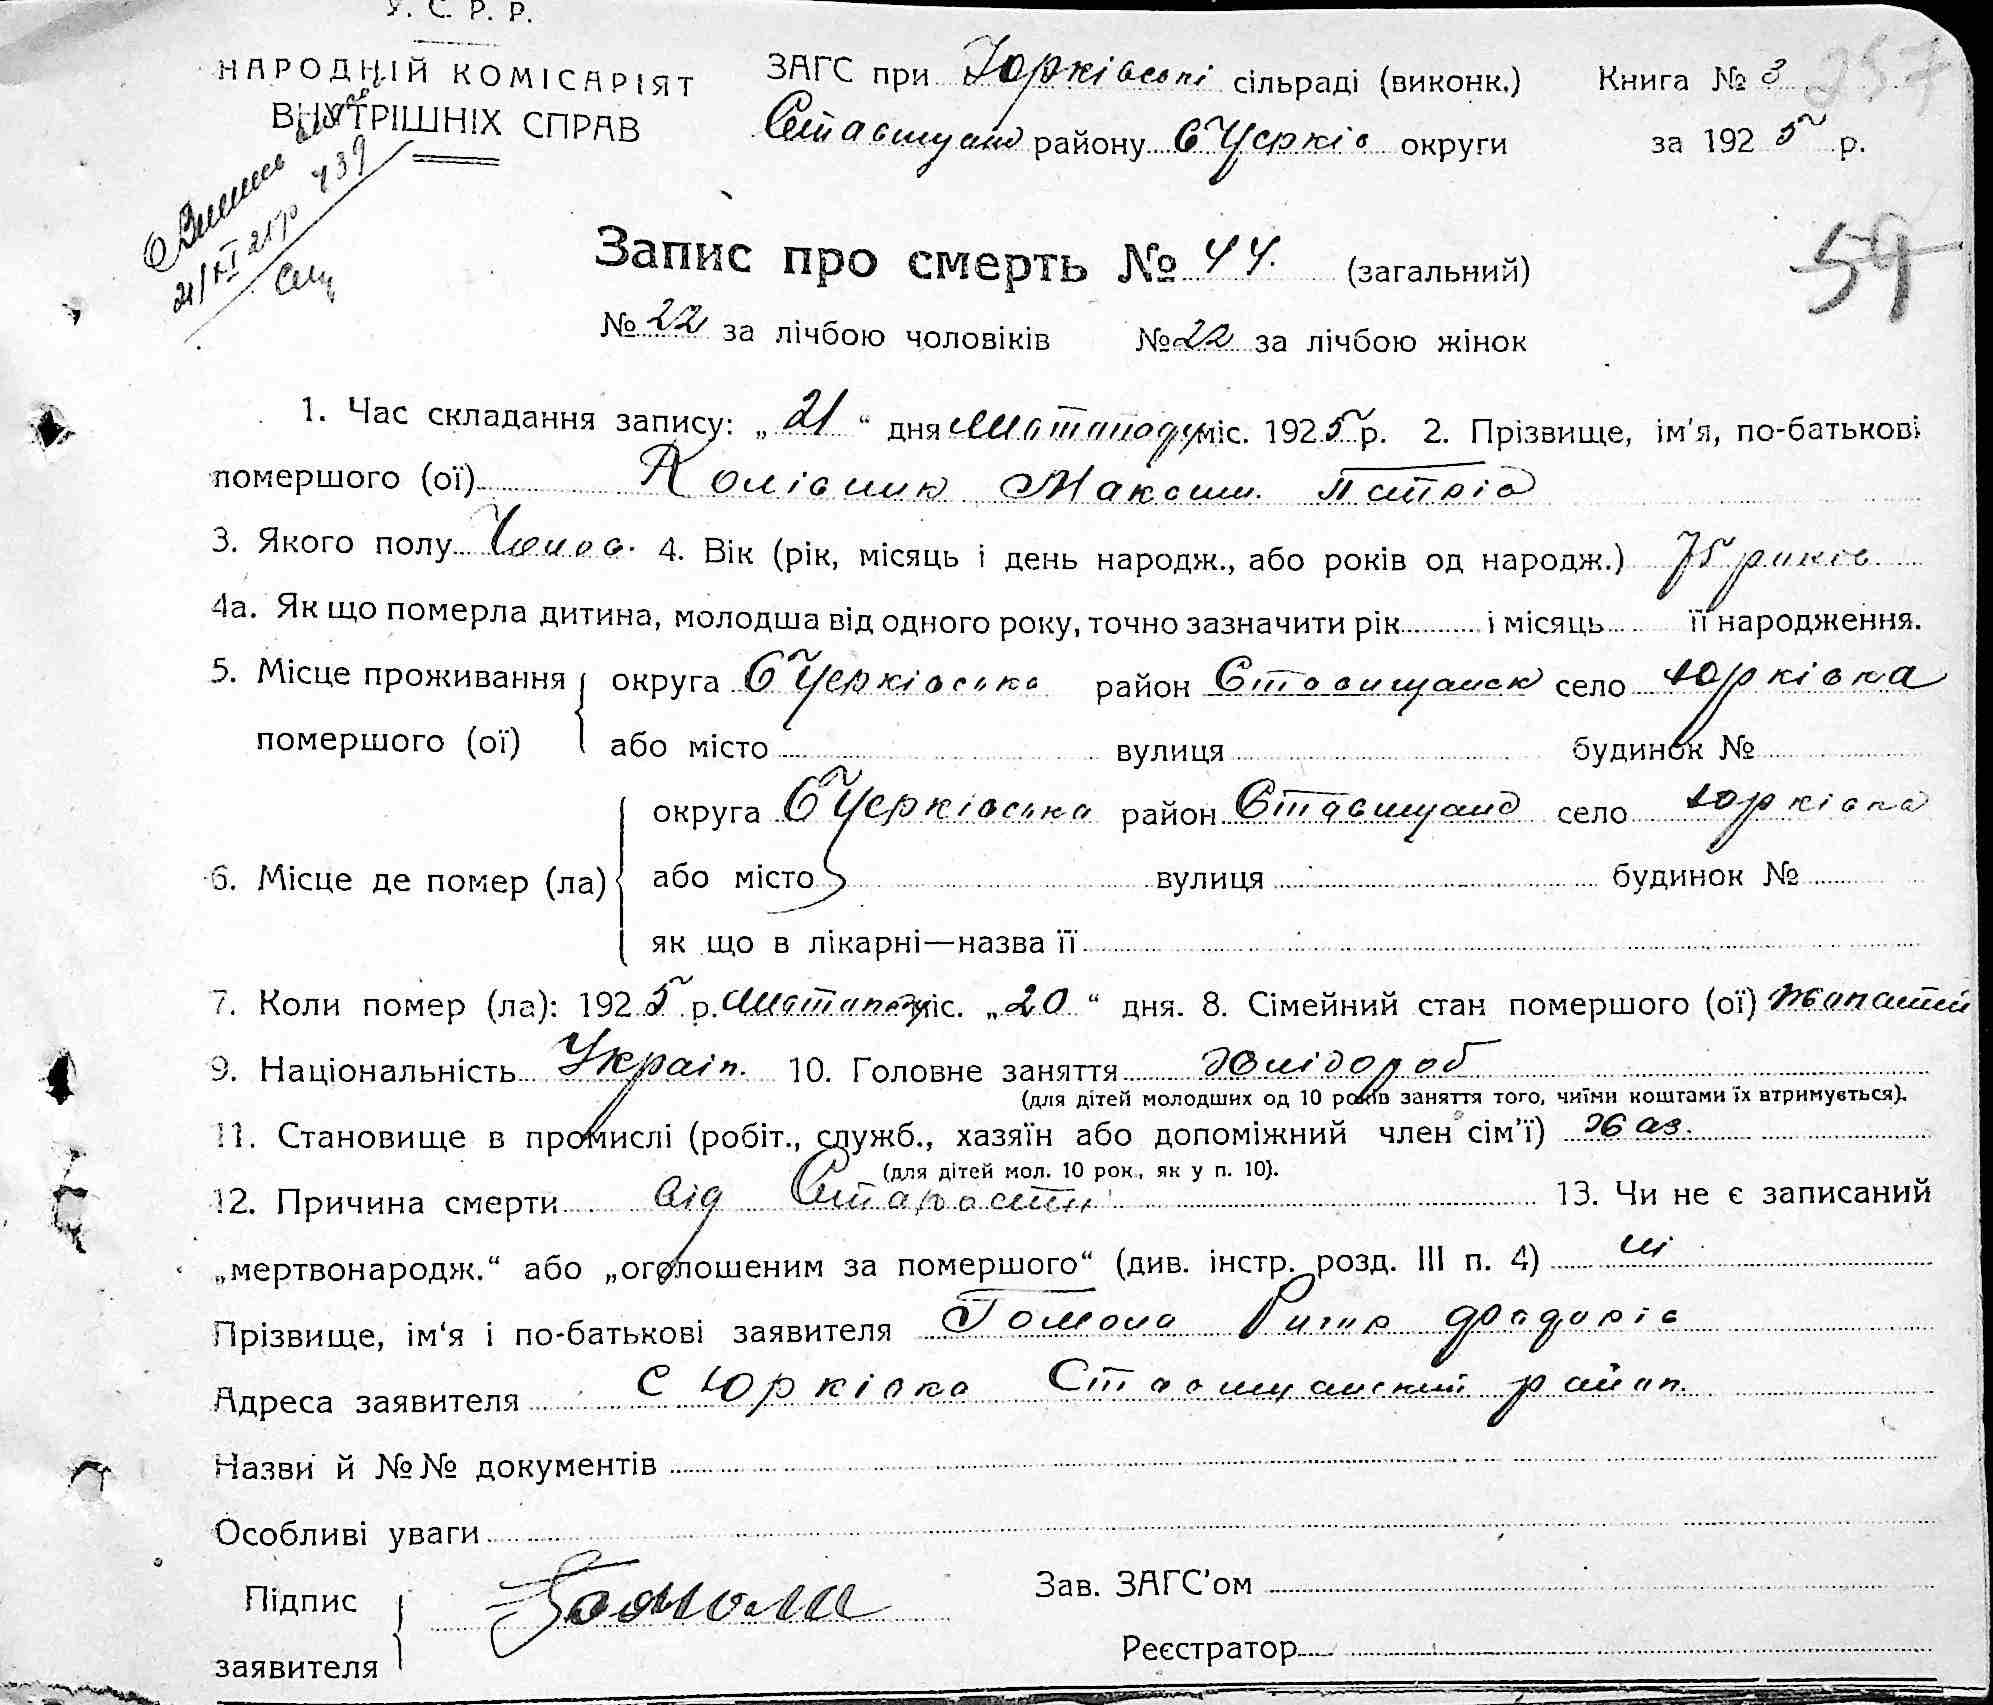 У. С. Р. Р.
НАРОДНІЙ КОМІСАРІЯТ
ВНУТРІШНІХ СПРАВ
ЗАГС при Юрківські сільраді (виконк.) Книга № 3 257
Ставищан району БЦерків округи за 1925 р.
439
Запис про смерть № 44. (загальний)
59
№ 22 за лічбою чоловіків № 22 за лічбою жінок
1. Час складання запису: „21“ дня Листопаду міс. 1925 р. 2. Прізвище, ім'я, по-батькові
помершого (ої) Колісник Максим Петрів
3. Якого полу Чолов. 4. Вік (рік, місяць і день народж., або років од народж.) 75 років
4а. Як що померла дитина, молодша від одного року, точно зазначити рік і місяць її народження.
5. Місце проживання помершого (ої) округа БЦерківська район Ставищанск село Юрківка
або місто вулиця будинок №
6. Місце де помер (ла) округа БЦерківська район Ставищан село Юрківка
або місто вулиця будинок №
як що в лікарні—назва її
7. Коли помер (ла): 1925 р. Листопаду міс. „20“ дня. 8. Сімейний стан помершого (ої) Жонатий
9. Національність Україн. 10. Головне заняття Хлібороб
(для дітей молодших од 10 років заняття того, чиїми коштами їх втримується).
11. Становище в промислі (робіт., служб., хазяїн або допоміжний член сім'ї) Хаз.
(для дітей мол. 10 рок., як у п. 10).
12. Причина смерти від Старости 13. Чи не є записаний
„мертвонародж.“ або „оголошеним за помершого“ (див. інстр. розд. III п. 4) ні
Прізвище, ім'я і по-батькові заявителя Гомола
Адреса заявителя с Юрківка Ставищанский район.
Назви й №№ документів
Особливі уваги
Підпис заявителя Гомола
Зав. ЗАГС'ом
Реєстратор